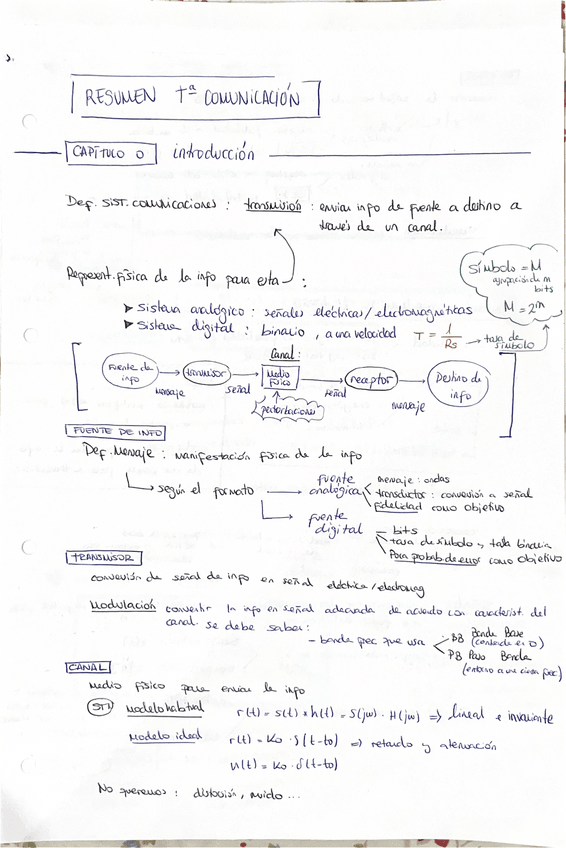 RESUMEN Tª COMUNICACIÓN
CAPÍTULO 0 introducción
Def. SIST. comunicaciones : transmisión : enviar info de fuente a destino a
través de un canal.
Represent. física de la info para esta :
Símbolo = M
agrupación de m
bits
M = 2^m
➤ Sistema analógico : señales eléctricas/electromagnéticas
➤ Sistema digital : binario , a una velocidad T = 1/Rs → tasa de
símbolo
Canal :
Fuente de info → transmisor → Medio físico → receptor → Destino de info
mensaje señal señal mensaje
perturbaciones
FUENTE DE INFO
Def. Mensaje : manifestación física de la info
→ según el formato → fuente analógica
mensaje : ondas
transductor : conversión a señal
fidelidad como objetivo
→ fuente digital
bits
tasa de símbolo y tasa binaria
Pocas probab de error como objetivo
TRANSMISOR
conversión de señal de info en señal eléctrica/electromag
Modulación convertir la info en señal adecuada de acuerdo con caracterist. del
canal. se debe saber :
- banda frec que usa
BB Banda Base
(contiene en 0)
PB Paso Banda
(entorno a una cierta frec)
CANAL
Medio físico para enviar la info
Modelo habitual r(t) = s(t) * h(t) = S(jω) · H(jω) ⇒ Lineal e invariante
Modelo ideal r(t) = K0 · δ(t-to) ⇒ retardo y atenuación
h(t) = K0 · δ(t-to)
No queremos : distorsión, ruido ...